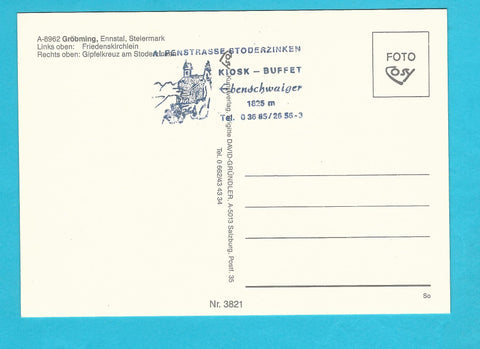 A-8962 Gröbming, Ennstal, Steiermark
Links oben: Friedenskirchlein
Rechts oben: Gipfelkreuz am Stoderzinken
ALPENSTRASSE STODERZINKEN
KIOSK – BUFFET
Ebenschwaiger
1825 m
Tel. 0 36 85/28 56-3
FOTO
Cosy
Cosy Kunstverlag, Brigitte DAVID-GRÜNDLER, A-5013 Salzburg, Postf. 35
Tel. 0 662/43 43 34
So
Nr. 3821